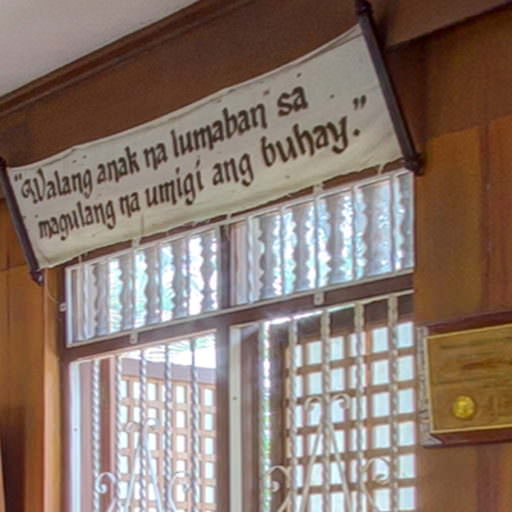 "Walang anak na lumaban sa
magulang na umigi ang buhay."